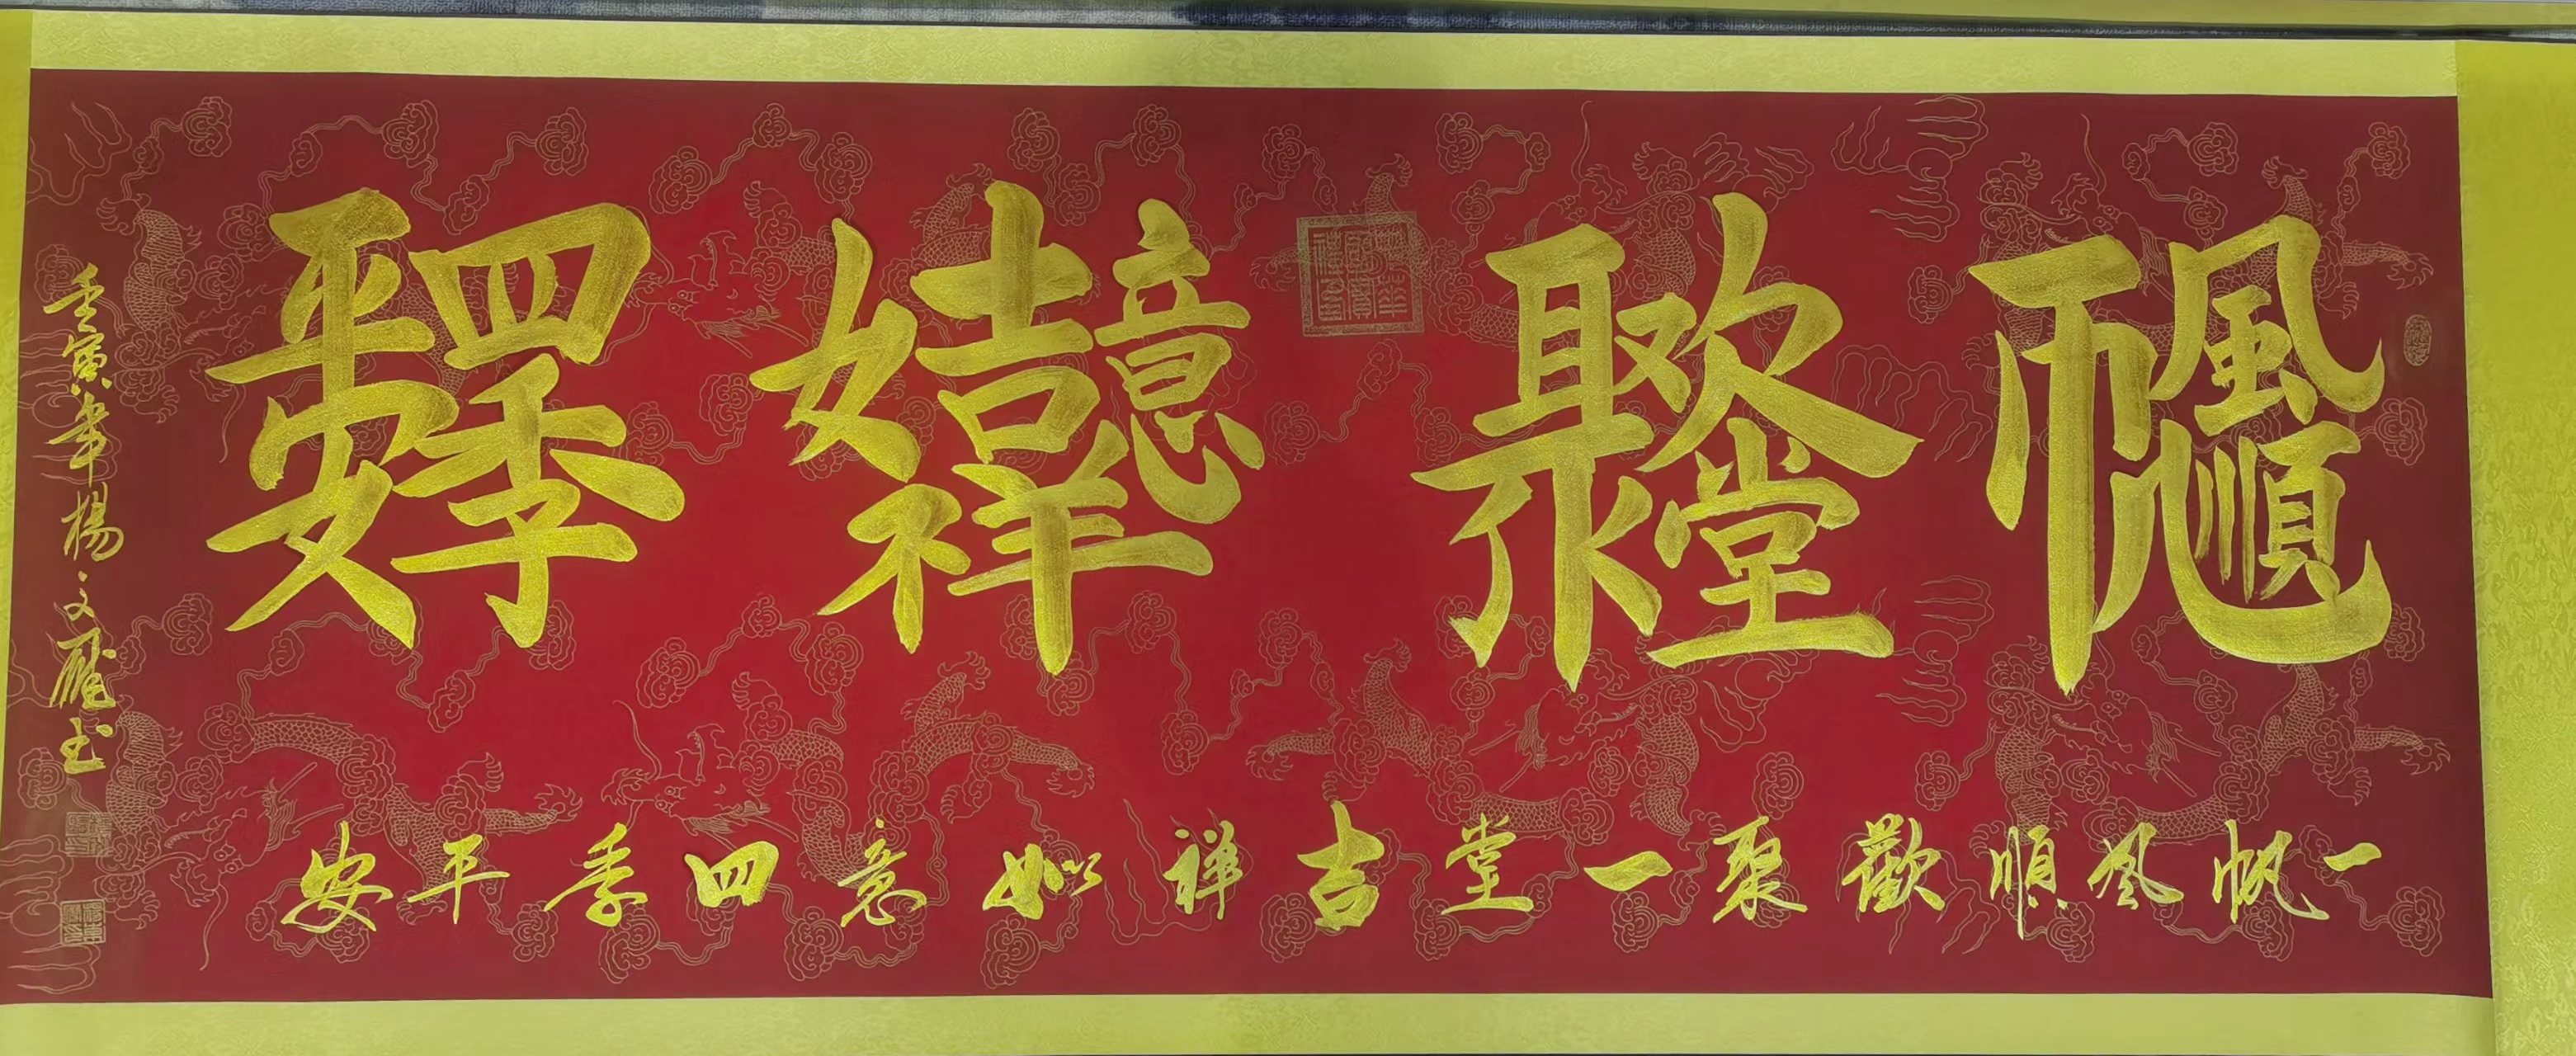 一帆風順 歡聚一堂 吉祥如意 四季平安
一帆风順歡聚一堂吉祥如意四季平安
壬寅年楊文书